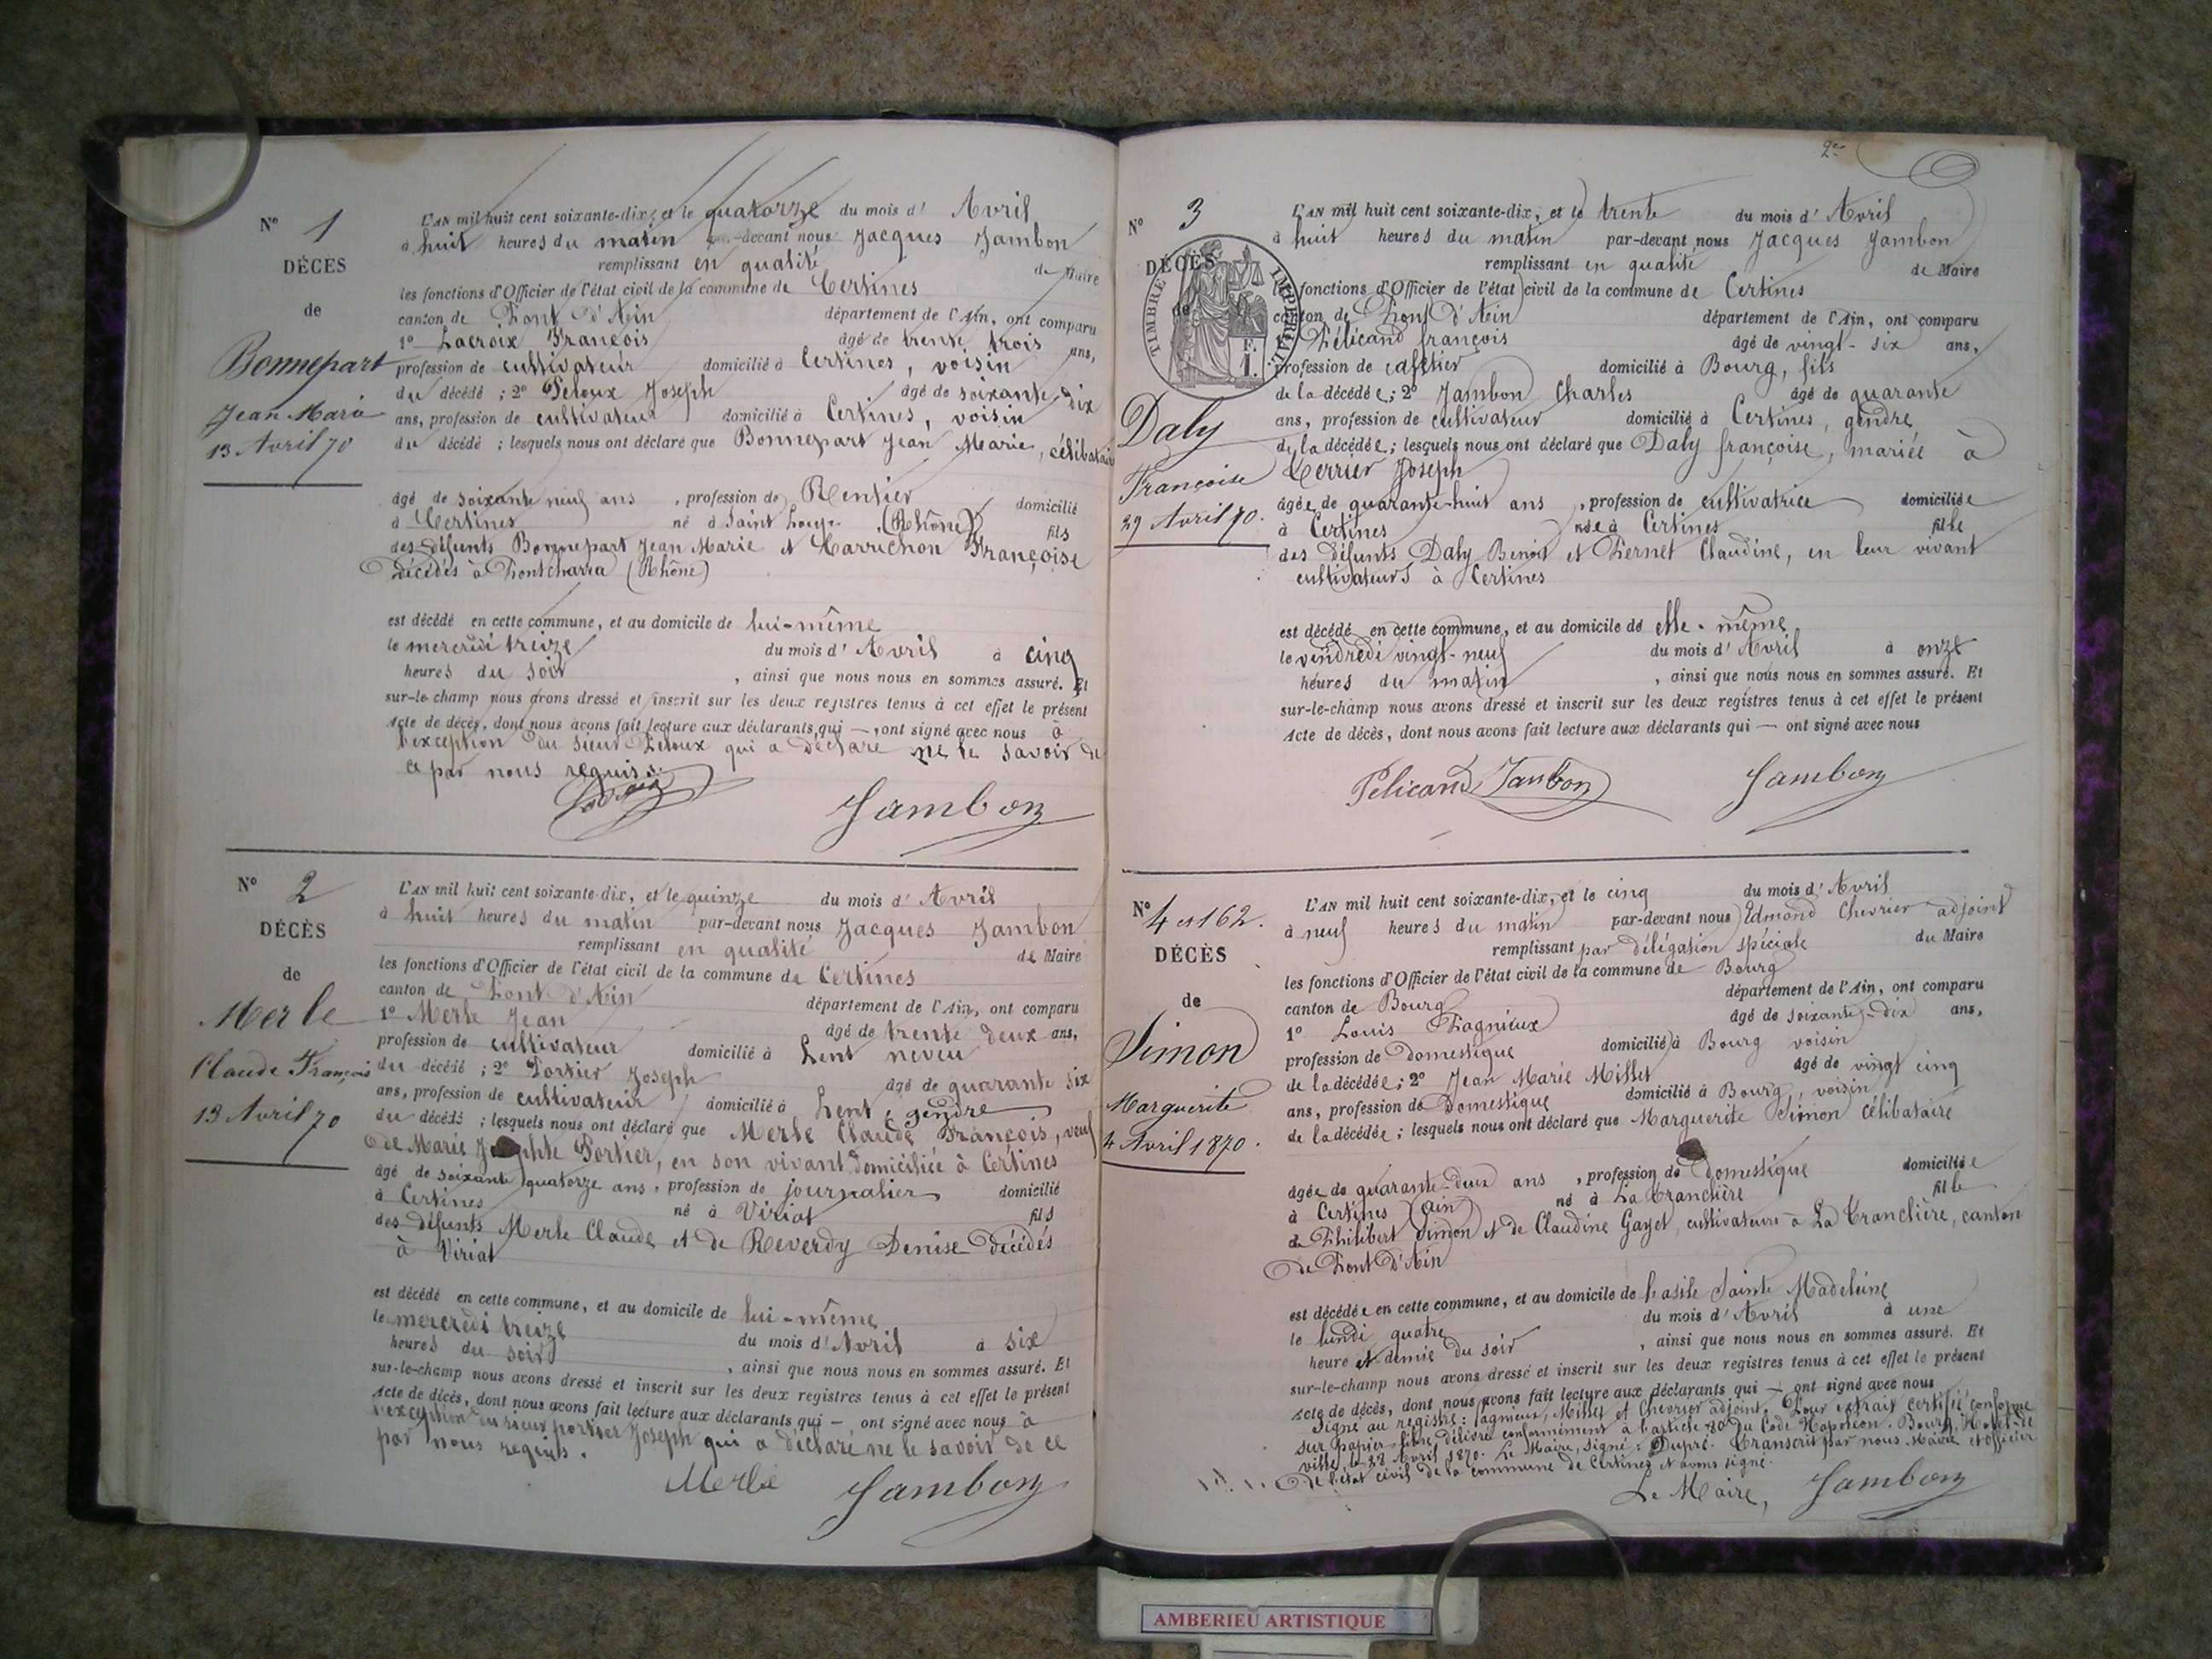 N° 1
DÉCÈS
de
Bonnepart
Jean Marie
13 Avril 70
L'AN mil huit cent soixante-dix, et le quatorze du mois d' Avril
à huit heures du matin par-devant nous Jacques Jambon
remplissant en qualité de Maire
les fonctions d'Officier de l'état civil de la commune de Certines
canton de Pont d'Ain département de l'Ain, ont comparu
1° Lacroix François âgé de trente trois ans,
profession de cultivateur domicilié à Certines, voisin
du décédé ; 2° Peloux Joseph âgé de soixante-dix
ans, profession de cultivateur domicilié à Certines, voisin
du décédé ; lesquels nous ont déclaré que Bonnepart Jean Marie, célibataire
âgé de soixante neuf ans , profession de Rentier domicilié
à Certines né à Saint Loup (Rhône) fils
des défunts Bonnepart Jean Marie et Françoise
décédés à Pontcharra (Rhône)
est décédé en cette commune, et au domicile de lui-même
le mercredi treize du mois d' Avril à cinq
heures du soir , ainsi que nous nous en sommes assuré. Et
sur-le-champ nous avons dressé et inscrit sur les deux registres tenus à cet effet le présent
Acte de décès, dont nous avons fait lecture aux déclarants qui — ont signé avec nous à
l'exception du sieur Peloux qui a déclaré ne le savoir de
ce par nous requis.
Jambon
N° 2
DÉCÈS
de
Merle
Claude François
13 Avril 70
L'AN mil huit cent soixante-dix, et le quinze du mois d' Avril
à huit heures du matin par-devant nous Jacques Jambon
remplissant en qualité de Maire
les fonctions d'Officier de l'état civil de la commune de Certines
canton de Pont d'Ain département de l'Ain, ont comparu
1° Merle Jean âgé de trente deux ans,
profession de cultivateur domicilié à Lent neveu
du décédé ; 2° Portier Joseph âgé de quarante six
ans, profession de cultivateur domicilié à Lent, gendre
du décédé ; lesquels nous ont déclaré que Merle Claude François, veuf
de Marie Josephte Portier, en son vivant domiciliée à Certines
âgé de soixante quatorze ans , profession de journalier domicilié
à Certines né à Viriat fils
des défunts Merle Claude et de Reverdy Denise décédés
à Viriat
est décédé en cette commune, et au domicile de lui-même
le mercredi treize du mois d' Avril à six
heures du soir , ainsi que nous nous en sommes assuré. Et
sur-le-champ nous avons dressé et inscrit sur les deux registres tenus à cet effet le présent
Acte de décès, dont nous avons fait lecture aux déclarants qui — ont signé avec nous à
l'exception du sieur portier Joseph qui a déclaré ne le savoir de ce
par nous requis.
Merle Jambon
2e
N° 3
DÉCÈS
de
TIMBRE IMPÉRIAL
1 F.
Daly
Françoise
29 Avril 70.
L'AN mil huit cent soixante-dix, et le trente du mois d' Avril
à huit heures du matin par-devant nous Jacques Jambon
remplissant en qualité de Maire
les fonctions d'Officier de l'état civil de la commune de Certines
canton de Pont d'Ain département de l'Ain, ont comparu
1° Pélicand françois âgé de vingt-six ans,
profession de cafetier domicilié à Bourg, fils
de la décédée ; 2° Jambon Charles âgé de quarante
ans, profession de cultivateur domicilié à Certines, gendre
de la décédée ; lesquels nous ont déclaré que Daly françoise, mariée à
Perrier Joseph
âgée de quarante-huit ans , profession de cultivatrice domiciliée
à Certines née à Certines fille
des défunts Daly Benoit et Pernet Claudine, en leur vivant
cultivateurs à Certines
est décédé en cette commune, et au domicile de elle-même
le vendredi vingt-neuf du mois d' Avril à onze
heures du matin , ainsi que nous nous en sommes assuré. Et
sur-le-champ nous avons dressé et inscrit sur les deux registres tenus à cet effet le présent
Acte de décès, dont nous avons fait lecture aux déclarants qui — ont signé avec nous
Pelicand Jambon Jambon
N° 4 et 162.
DÉCÈS
de
Simon
Marguerite
4 Avril 1870.
L'AN mil huit cent soixante-dix, et le cinq du mois d' Avril
à neuf heures du matin par-devant nous Edmond Chevrier adjoint
remplissant par délégation spéciale du Maire
les fonctions d'Officier de l'état civil de la commune de Bourg
canton de Bourg département de l'Ain, ont comparu
1° Louis Pagnieux âgé de soixante-dix ans,
profession de Domestique domicilié à Bourg voisin
de la décédée ; 2° Jean Marie Millet âgé de vingt cinq
ans, profession de Domestique domicilié à Bourg, voisin
de la décédée ; lesquels nous ont déclaré que Marguerite Simon célibataire
âgée de quarante-deux ans , profession de domestique domiciliée
à Certines (Ain) né à La Tranclière fille
de Philibert Simon et de Claudine Gayet, cultivateurs à La Tranclière, canton
de Pont d'Ain
est décédée en cette commune, et au domicile de l'asile Sainte Madeleine
le lundi quatre du mois d' Avril à une
heure et demie du soir , ainsi que nous nous en sommes assuré. Et
sur-le-champ nous avons dressé et inscrit sur les deux registres tenus à cet effet le présent
Acte de décès, dont nous avons fait lecture aux déclarants qui — ont signé avec nous
Signé au registre : Pagnieux, Millet et Chevrier adjoint. Pour extrait certifié conforme
sur papier libre délivré conformément à l'article 80 du Code Napoléon. Bourg, Hôtel-de
ville, le 28 Avril 1870. Le Maire, signé : Dupré. Transcrit par nous Maire et officier
de l'état civil de la commune de Certines et avons signé.
Le Maire, Jambon
AMBERIEU ARTISTIQUE